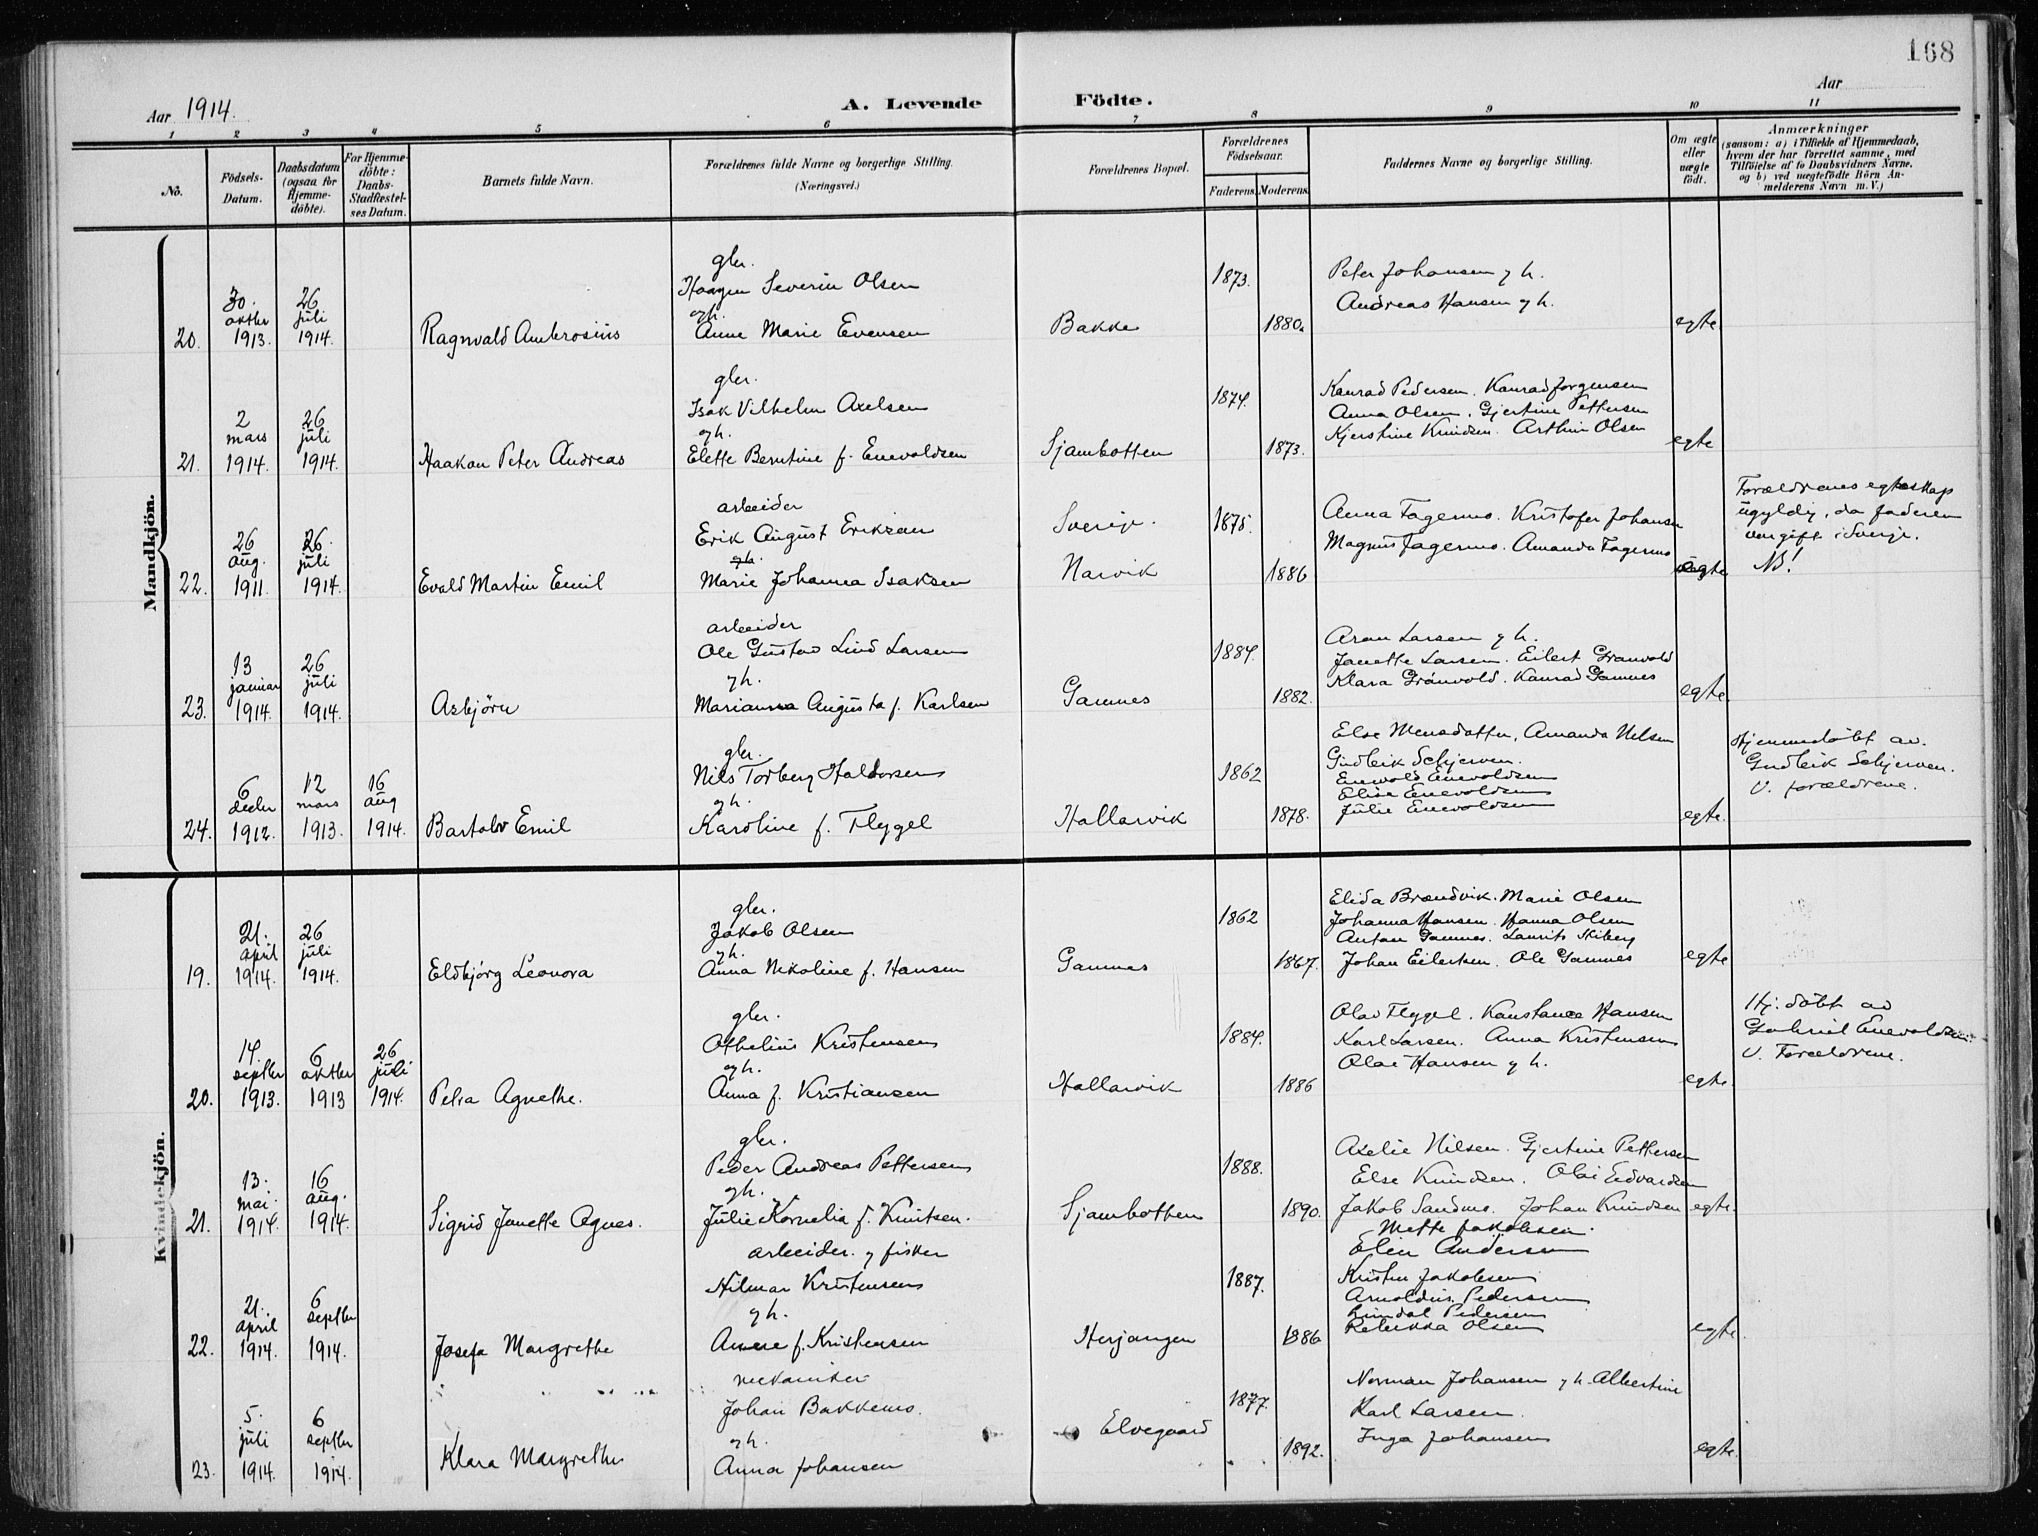 168
Aar 1914.
A. Levende Födte.
Aar
1 2 3 4 5 6 7 8 9 10 11
No.
Födsels-Datum.
Daabsdatum (ogsaa for Hjemme-döbte).
For Hjemme-döbte: Daabs-Stadfæstel-ses Datum.
Barnets fulde Navn.
Forældrenes fulde Navne og borgerlige Stilling.
(Næringsvei.)
Forældrenes Bopæl.
Forældrenes Födselsaar.
Faderens. Moderens.
Faddernes Navne og borgerlige Stilling.
Om ægte eller uægte födt.
Anmærkninger
(saasom: a) i Tilfælde af Hjemmedaab,
hvem der har forrettet samme, med
Tilföielse af to Daabsvidners Navne,
og b) ved uægtefödte Börn An-
melderens Navn m. V.)
Mandkjön.
20.
30. oktbr 1913.
26 juli 1914.
Ragnvald Ambrosius
gbr.
Haagen Severin Olsen
og h.
Anne Marie Evensen
Bakke
1873.
1880.
Peter Johansen g h.
Andreas Hansen g h.
egte
21.
2 mars 1914.
26 juli 1914.
Haakon Peter Andreas
gbr.
Isak Vilhelm Axelsen
og h.
Elette Berntine f. Enevoldsen
Sjømbotten
1874.
1873.
Konrad Pedersen. Konrad Jørgensen
Anna Olsen. Gjertine Pettersen
Kjerstine Knudsen. Arthur Olsen
egte
22.
26 aug. 1911.
26. juli 1914.
Evald Martin Emil
arbeider
Erik August Erikson
og h.
Marie Johanna Isaksen
Sverige.
Narvik
1875.
1886
Anna Fagermo. Kristofer Johansen
Magnus Fagermo. Amanda Fagermo
uegte
Forældrenes egteskap
ugyldig, da faderen
var gift i Sverige.
NB!
23.
13 januar 1914.
26 juli 1914.
Asbjørn
arbeider
Ole Gustav Lind Larsen
g h.
Marianna Augusta f. Karlsen
Gamnes
1884.
1882.
Aron Larsen g h.
Janette Larsen. Eilert Grønvold
Klara Grønvold. Konrad Gamnes
egte.
24.
6 decbr 1912.
12 mars 1913.
16 aug 1914.
Bartolv Emil
gbr.
Nils Torberg Haldorsen
og h.
Karoline f. Flygel
Hallarvik
1862
1878.
Else Mensdatter, Amanda Nilsen
Gudleik Schjerven.
Enevold Enevoldsen
Elise Enevoldsen
Julie Enevoldsen
egte.
Hjemmedøbt av
Gudleik Schjerven.
V. forældrene.
Kvindekjön.
19.
21. april 1914.
26 juli 1914.
Eldbjørg Leonora
gbr.
Jakob Olsen
g h.
Anna Nikoline f. Hansen
Gamnes
1862
1867.
Elida Brandvik. Marie Olsen
Johanna Hansen. Hanna Olsen
Anton Gamnes. Laurits Skiberg
Johan Eilertsen. Ole Gamnes
egte
20.
14. septbr 1913.
6 oktbr 1913
26 juli 1914.
Petra Agnethe.
gbr.
Othelius Kristensen
og h.
Anna f. Kristiansen
Hallarvik
1884.
1886
Olav Flygel. Konstance Hansen
Karl Larsen. Anna Kristensen
Olai Hansen g h.
egte
Hj. døbt av
Gabriel Enevoldsen
V. Forældrene.
21.
13. mai. 1914.
16 aug. 1914.
Sigrid Janette Agnes.
gbr.
Peder Andreas Pettersen
og h.
Julie Kornelia f. Knutsen.
Sjømbotten
1888.
1890.
Axelie Nilsen. Gjertine Pettersen
Else Knudsen. Olai Edvardsen
Jakob Sandmo. Johan Knudsen
Mette Jakobsen.
egte.
22.
21. april 1914.
6 septbr 1914.
Josefa Margrethe
arbeider. g fisker
Hilmar Kristensen
g h.
Anne f. Kristensen
Herjangen
1887.
1886
Elen Andersen
Kristen Jakobsen
Arnoldus Pedersen
Lindal Pedersen
Rebekka Olsen
egte.
23.
5. juli 1914.
6 septbr 1914.
Klara Margrethe
mekaniker
Johan Bakkemo.
og h.
Anna Johansen
Elvegaard
1877.
1892.
Norman Johansen g h. Albertine
Karl Larsen.
Inga Johansen
egte.